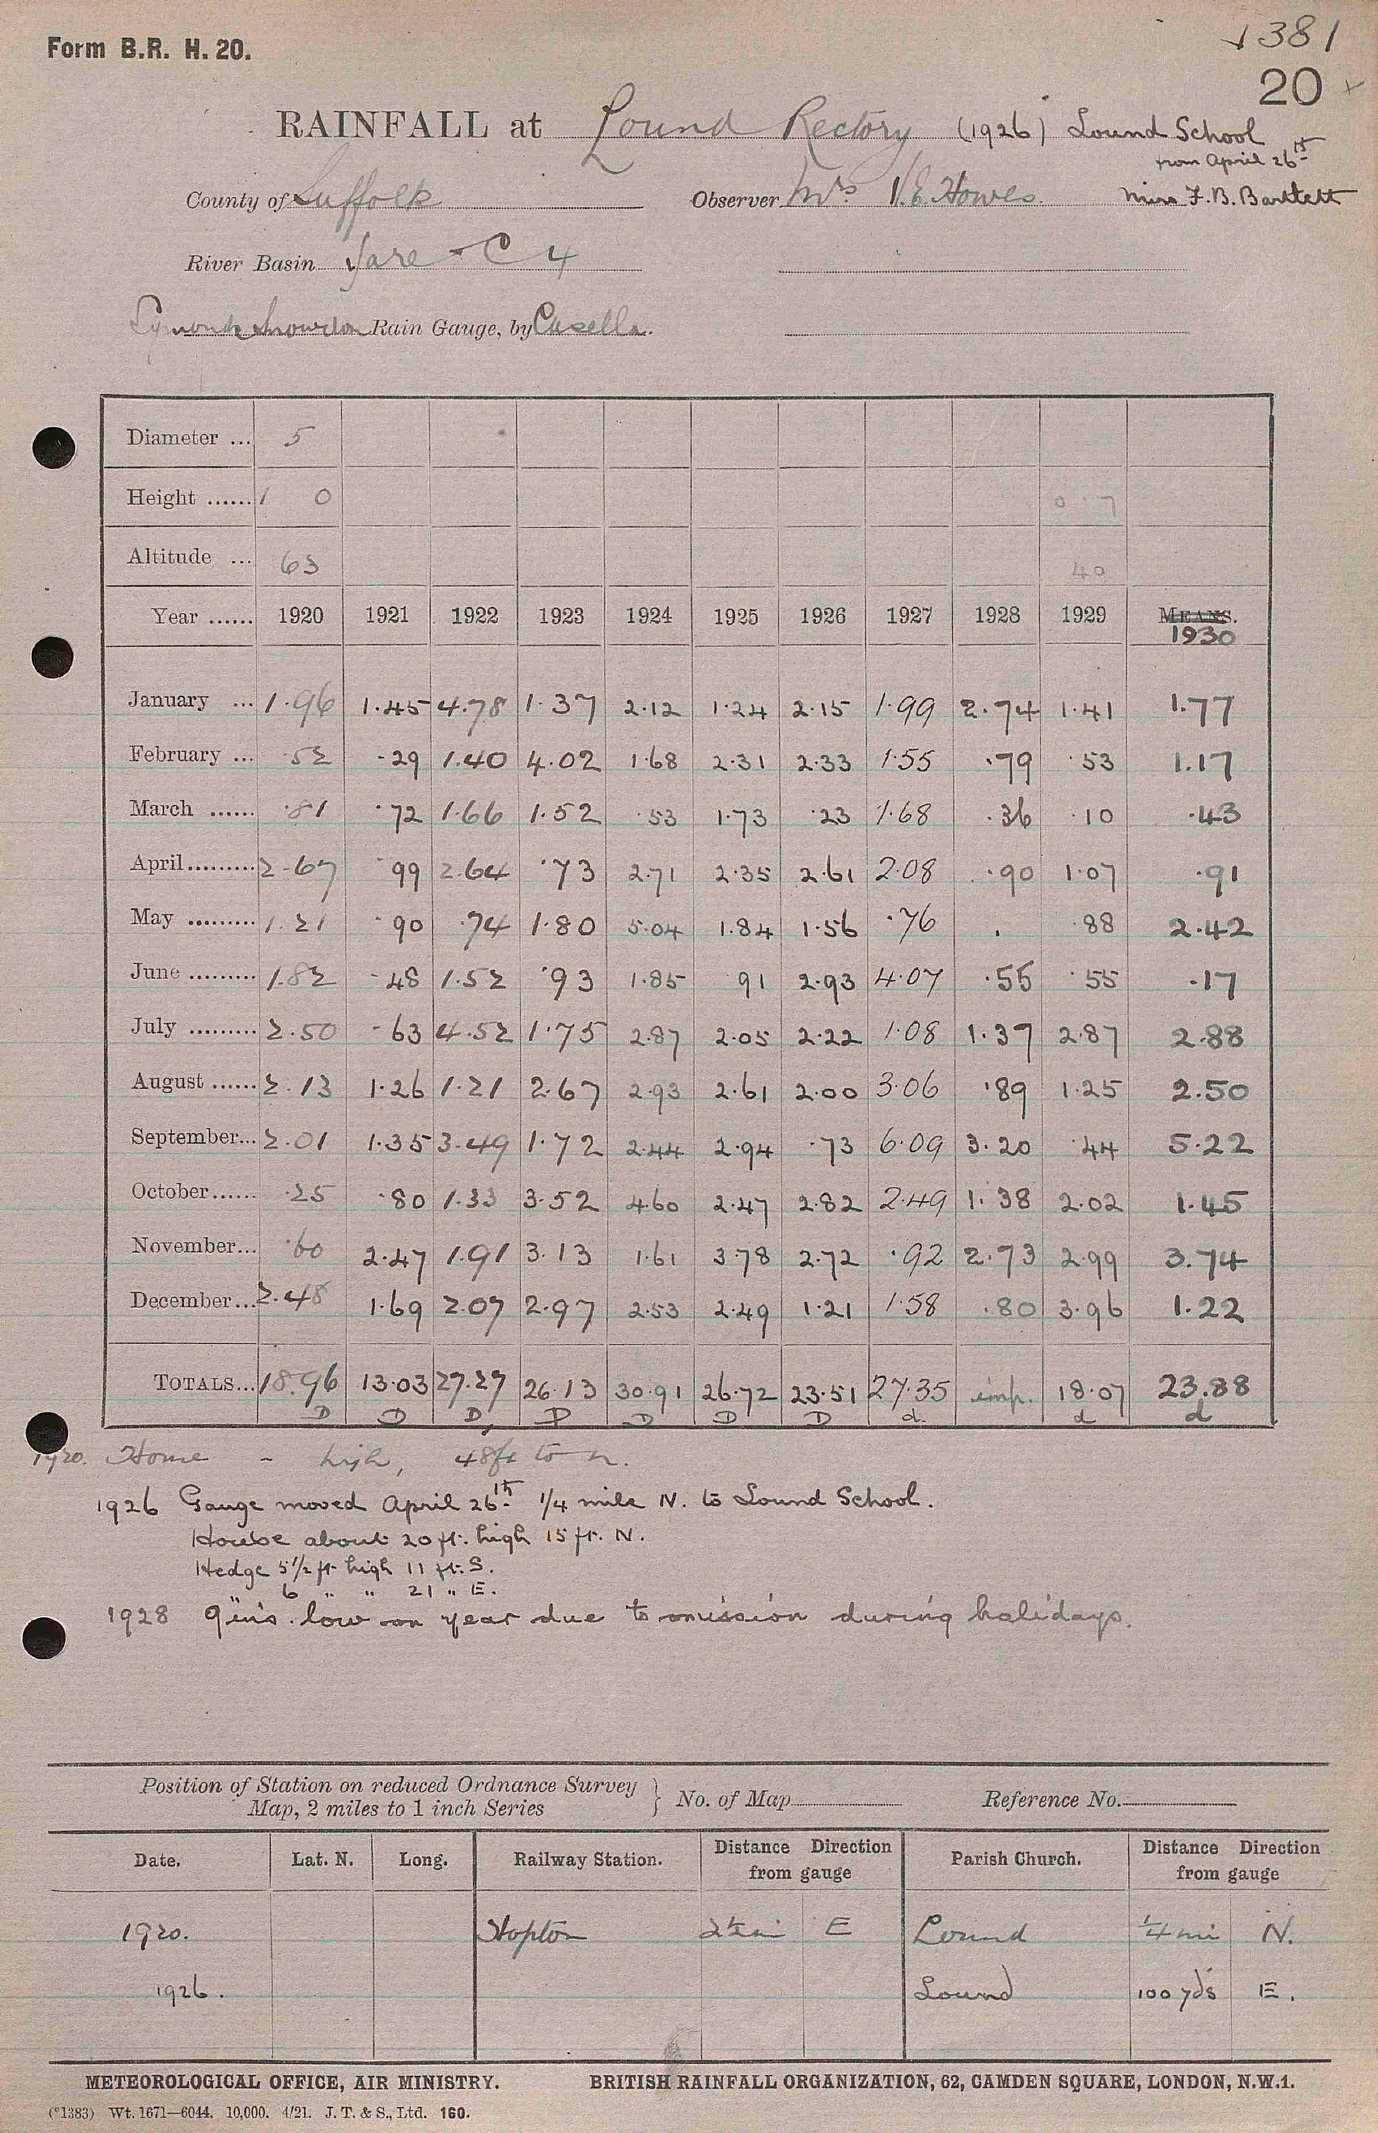 Form B.R. H. 20.
1381
20
RAINFALL at Lound Rectory (1926) Lound School
from April 26th
County of Suffolk Observer Mrs V.E. Howes. Miss F.B. Bartlett
River Basin Yare - C 4
Symons Snowdon Rain Gauge, by Casella.
Diameter ... 5
Height ...... 1 0 0 7
Altitude ... 63 40
Year ...... 1920 1921 1922 1923 1924 1925 1926 1927 1928 1929 MEANS.
1930
January ... 1.96 1.45 4.78 1.37 2.12 1.24 2.15 1.99 2.74 1.41 1.77
February ... .52 .29 1.40 4.02 1.68 2.31 2.33 1.55 .79 .53 1.17
March ...... .81 .72 1.66 1.52 .53 1.73 .23 1.68 .36 .10 .43
April ......... 2.67 .99 2.64 .73 2.71 2.35 2.61 2.08 .90 1.07 .91
May ......... 1.21 .90 .74 1.80 5.04 1.84 1.56 .76 . .88 2.42
June ......... 1.82 .48 1.52 .93 1.85 .91 2.93 4.07 .55 .55 .17
July ......... 2.50 .63 4.52 1.75 2.87 2.05 2.22 1.08 1.37 2.87 2.88
August ...... 2.13 1.26 1.21 2.67 2.93 2.61 2.00 3.06 .89 1.25 2.50
September... 2.01 1.35 3.49 1.72 2.44 2.94 .73 6.09 3.20 .44 5.22
October...... .25 .80 1.33 3.52 4.60 2.47 2.82 2.49 1.38 2.02 1.45
November... .60 2.47 1.91 3.13 1.61 3.78 2.72 .92 2.73 2.99 3.74
December... 2.48 1.69 2.07 2.97 2.53 2.49 1.21 1.58 .80 3.96 1.22
TOTALS... 18.96 13.03 27.27 26.13 30.91 26.72 23.51 27.35 imp. 18.07 23.88
D D D D D D D d. d d
1920. House - high, 48ft to n.
1926 Gauge moved April 26th 1/4 mile N. to Lound School.
House about 20 ft. high 15 ft. N.
Hedge 5 1/2 ft high 11 ft. S.
" 6 " " 21 " E.
1928 9 ins. low on year due to omission during holidays.
Position of Station on reduced Ordnance Survey
Map, 2 miles to 1 inch Series } No. of Map Reference No.
Date. Lat. N. Long. Railway Station. Distance Direction from gauge Parish Church. Distance Direction from gauge
1920. Hopton 2½ mi E Lound ¼ mi N.
1926. Lound 100 yds E.
METEOROLOGICAL OFFICE, AIR MINISTRY. BRITISH RAINFALL ORGANIZATION, 62, CAMDEN SQUARE, LONDON, N.W.1.
(*1383) Wt. 1671—6044. 10,000. 4/21. J. T. & S., Ltd. 160.